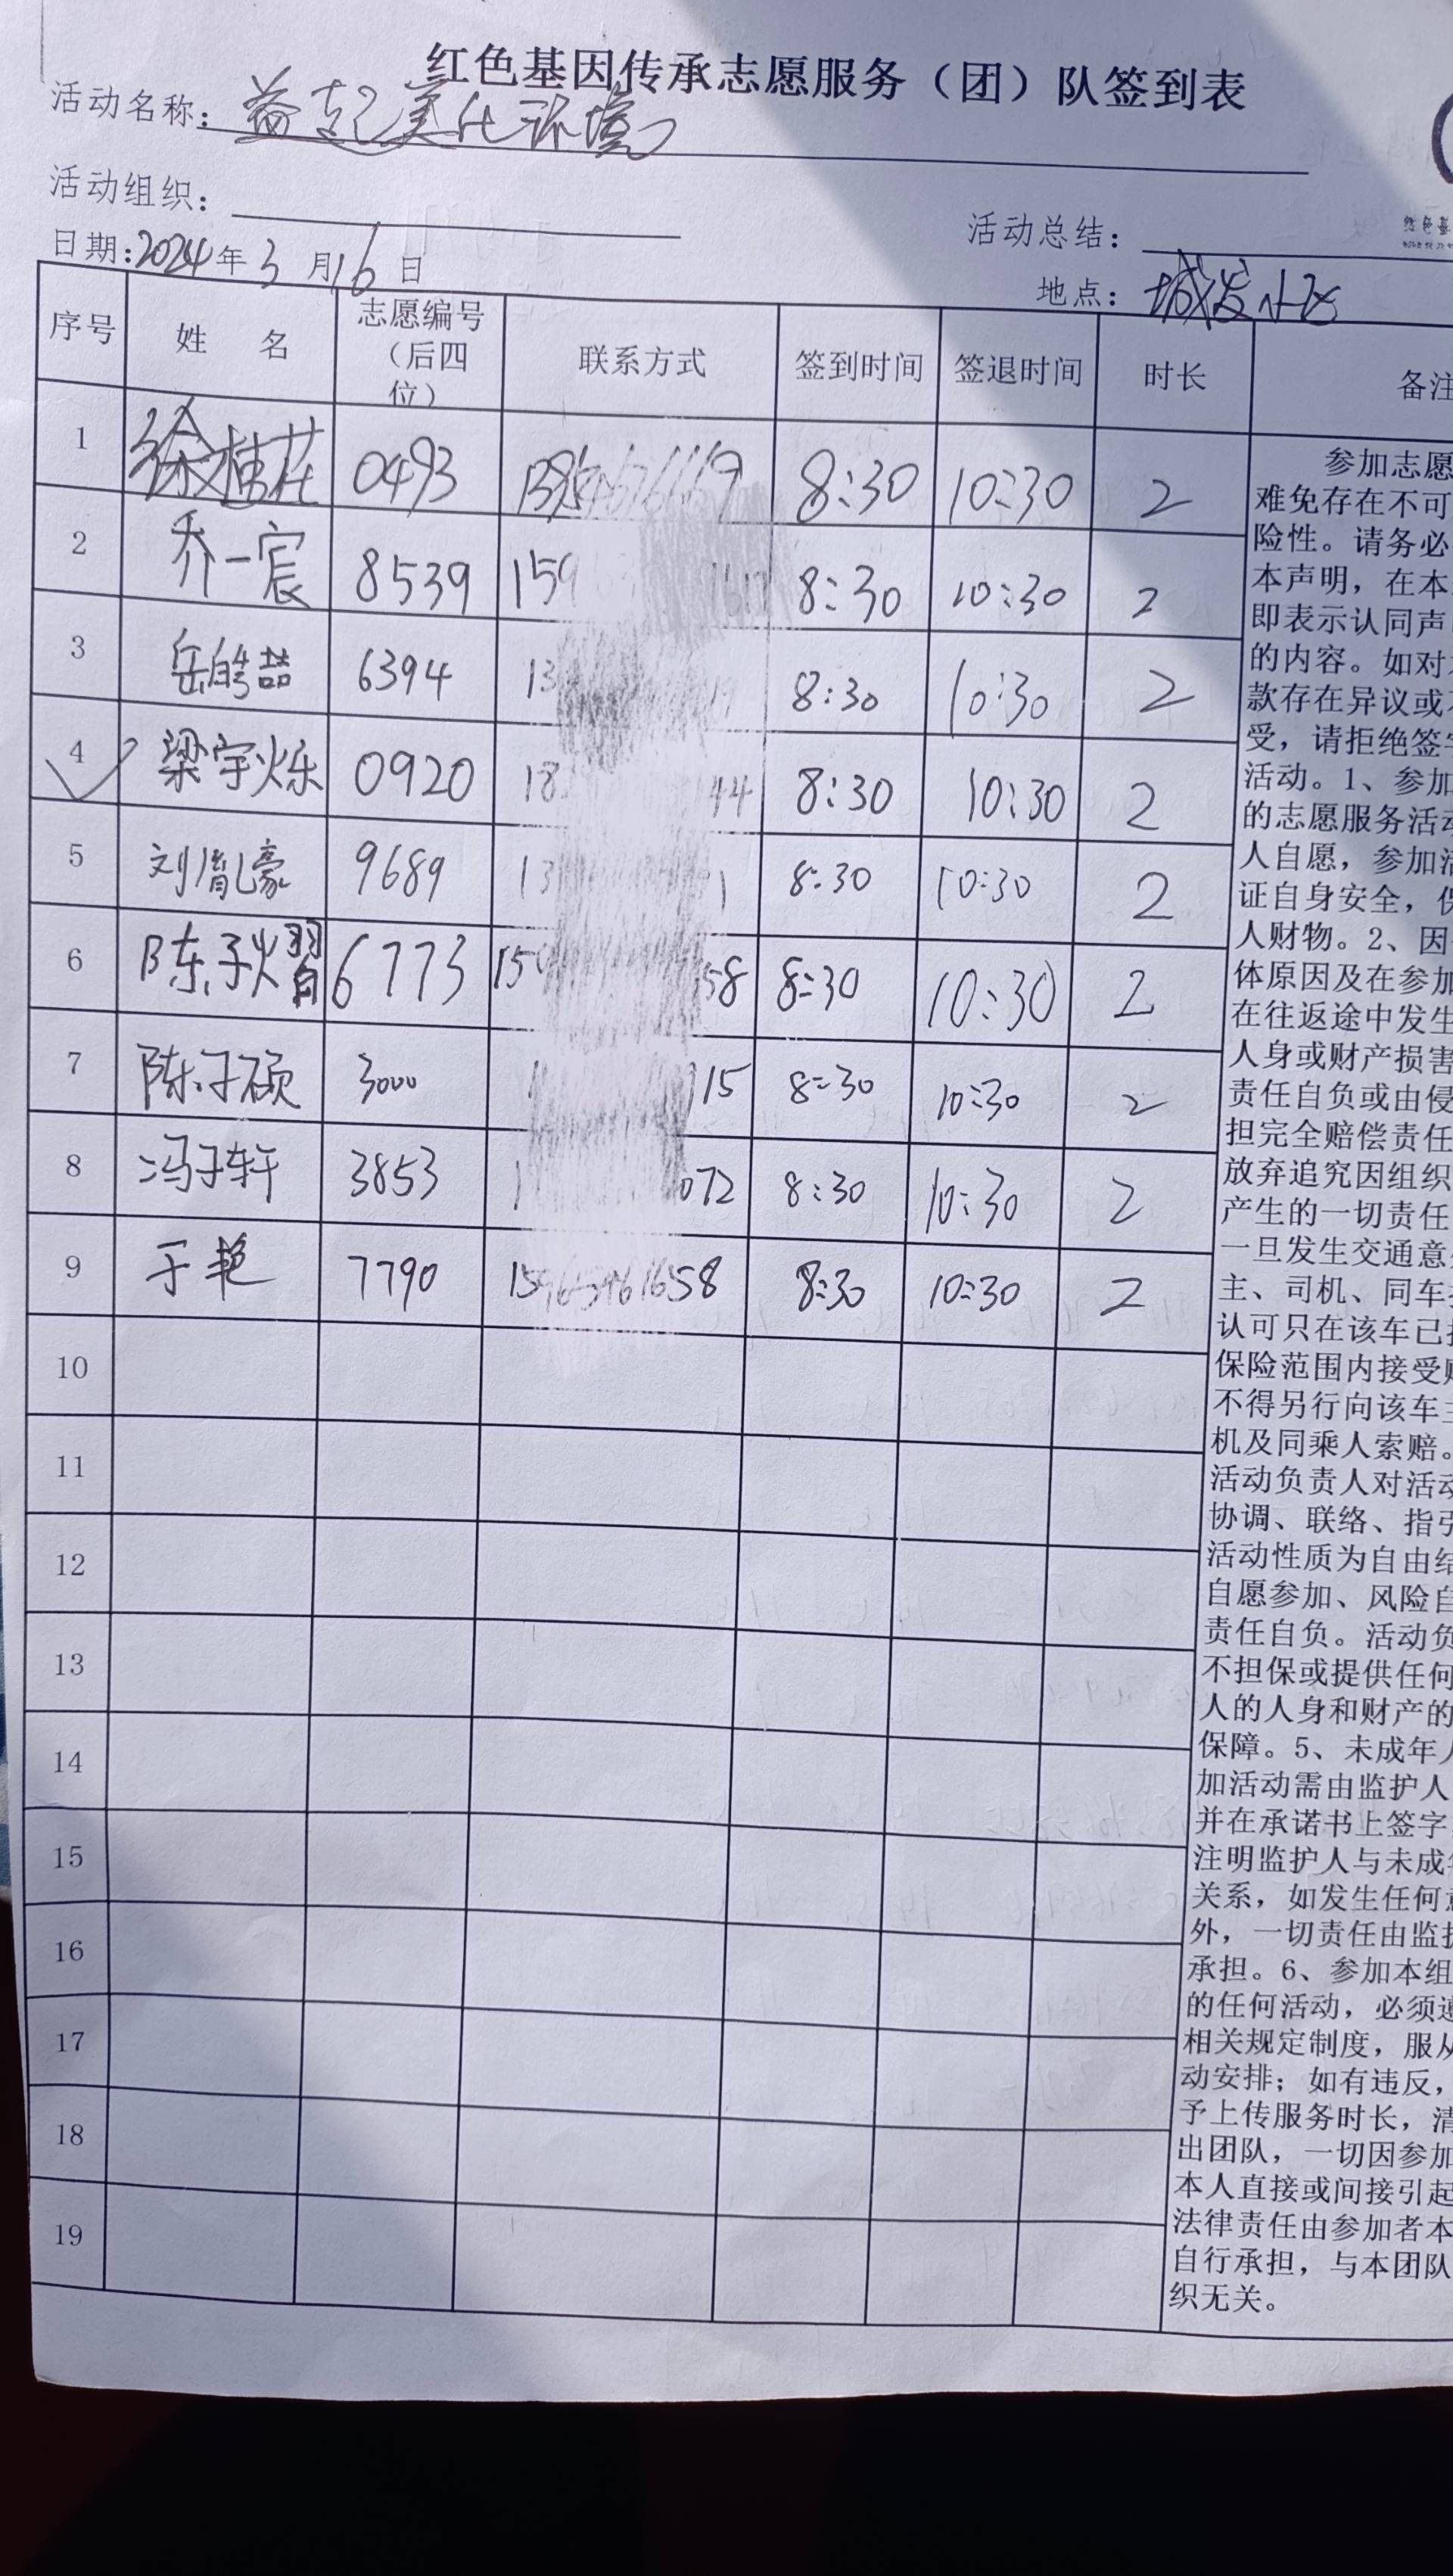 红色基因传承志愿服务（团）队签到表
活动名称：益起美化环境
活动组织：
活动总结：
日期：2024年3月16日
地点：城发小区
序号 姓 名 志愿编号（后四位） 联系方式 签到时间 签退时间 时长 备注
1 徐桂花 0493 8:30 10:30 2
2 乔一宸 8539 159 8:30 10:30 2
3 岳皓喆 6394 13 8:30 10:30 2
4 梁宇烁 0920 18 44 8:30 10:30 2
5 刘胤豪 9689 13 1 8:30 10:30 2
6 陈子熠 6773 150 58 8:30 10:30 2
7 陈子硕 3000 1 15 8:30 10:30 2
8 冯子轩 3853 1 072 8:30 10:30 2
9 于艳 7790 8:30 10:30 2
10
11
12
13
14
15
16
17
18
19
参加志愿
难免存在不可
险性。请务必
本声明，在本
即表示认同声
的内容。如对
款存在异议或
受，请拒绝签字
活动。1、参加
的志愿服务活动
人自愿，参加活
证自身安全，保
人财物。2、因
体原因及在参加
在往返途中发生
人身或财产损害
责任自负或由侵
担完全赔偿责任
放弃追究因组织
产生的一切责任
一旦发生交通意
主、司机、同车
认可只在该车已
保险范围内接受
不得另行向该车主
机及同乘人索赔。
活动负责人对活动
协调、联络、指引
活动性质为自由结
自愿参加、风险自
责任自负。活动负
不担保或提供任何
人的人身和财产的
保障。5、未成年人
加活动需由监护人
并在承诺书上签字
注明监护人与未成年
关系，如发生任何意
外，一切责任由监护
承担。6、参加本组
的任何活动，必须遵
相关规定制度，服从
动安排；如有违反，
予上传服务时长，清
出团队，一切因参加
本人直接或间接引起
法律责任由参加者本
自行承担，与本团队
织无关。